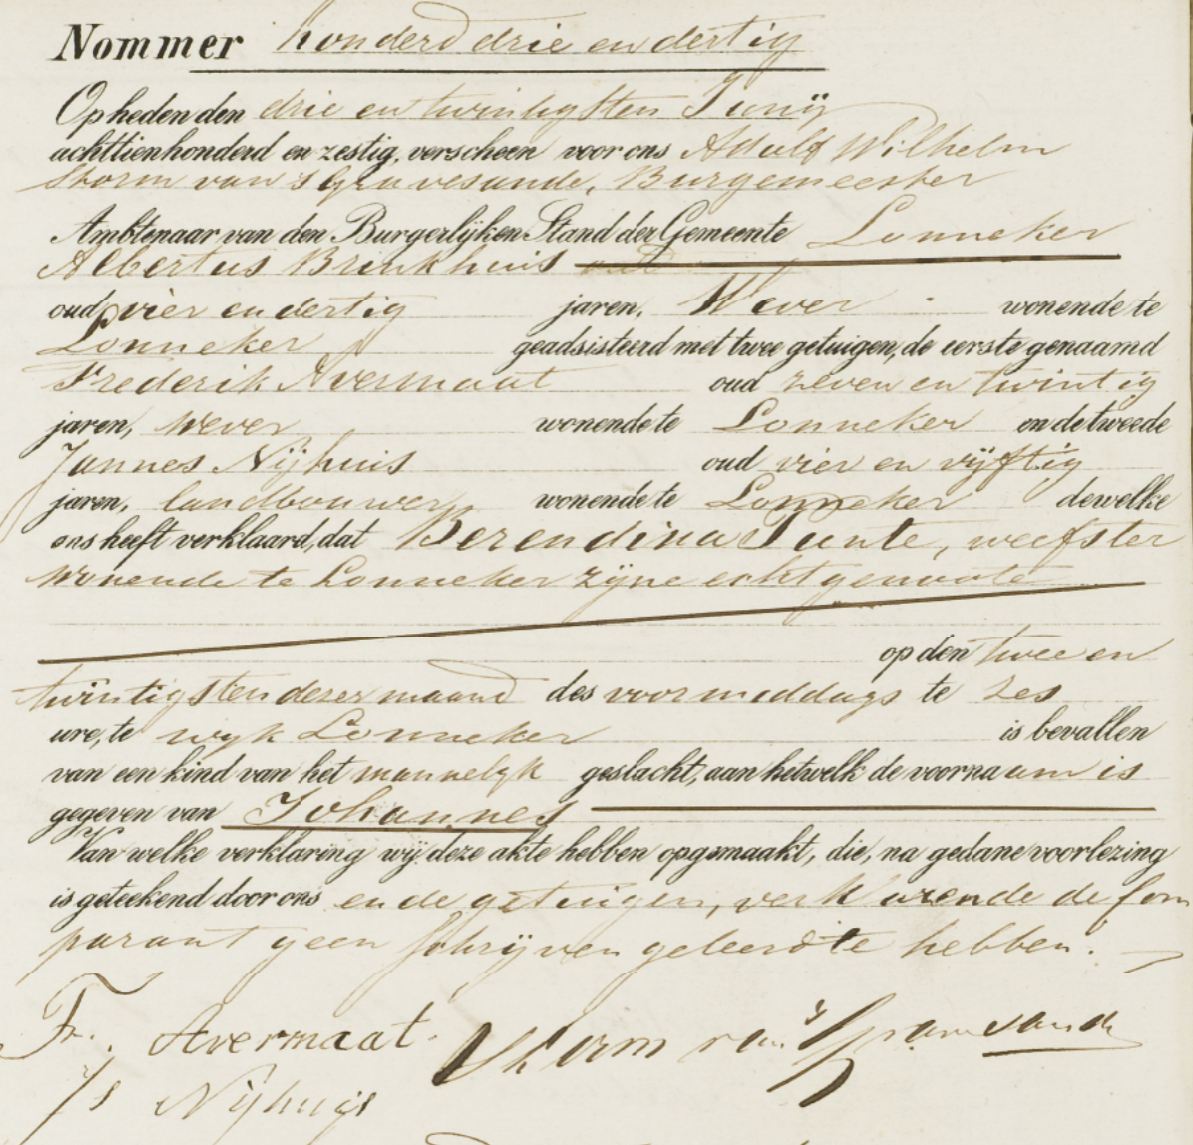 Nommer honderd drie en dertig
Op heden den drie en twintigsten Junij
achttienhonderd en zestig, verscheen voor ons Adolf Wilhelm
Storm van 's Gravesande, Burgemeester
Ambtenaar van den Burgerlijken Stand der Gemeente Lonneker
Albertus Brinkhuis
oud vier en dertig jaren, Wever wonende te
Lonneker geadsisteerd met twee getuigen, de eerste genaamd
Frederik Avermaat oud zeven en twintig
jaren, wever wonende te Lonneker en de tweede
Jannes Nijhuis oud vier en vijftig
jaren, landbouwer wonende te Lonneker dewelke
ons heeft verklaard, dat Berendina Tunte, weefster
wonende te Lonneker zijne echtgenoote
op den twee en
twintigsten dezer maand des voormiddags te zes
ure, te wyk Lonneker is bevallen
van een kind van het mannelyk geslacht, aan hetwelk de voornaam is
gegeven van Johannes
Van welke verklaring wij deze akte hebben opgemaakt, die, na gedane voorlezing
is geteekend door ons en de getuigen, verklarende de Com
parant geen schrijven geleerd te hebben.
Fr. Avermaat. Storm van 's Gravesande
Js Nijhuijs